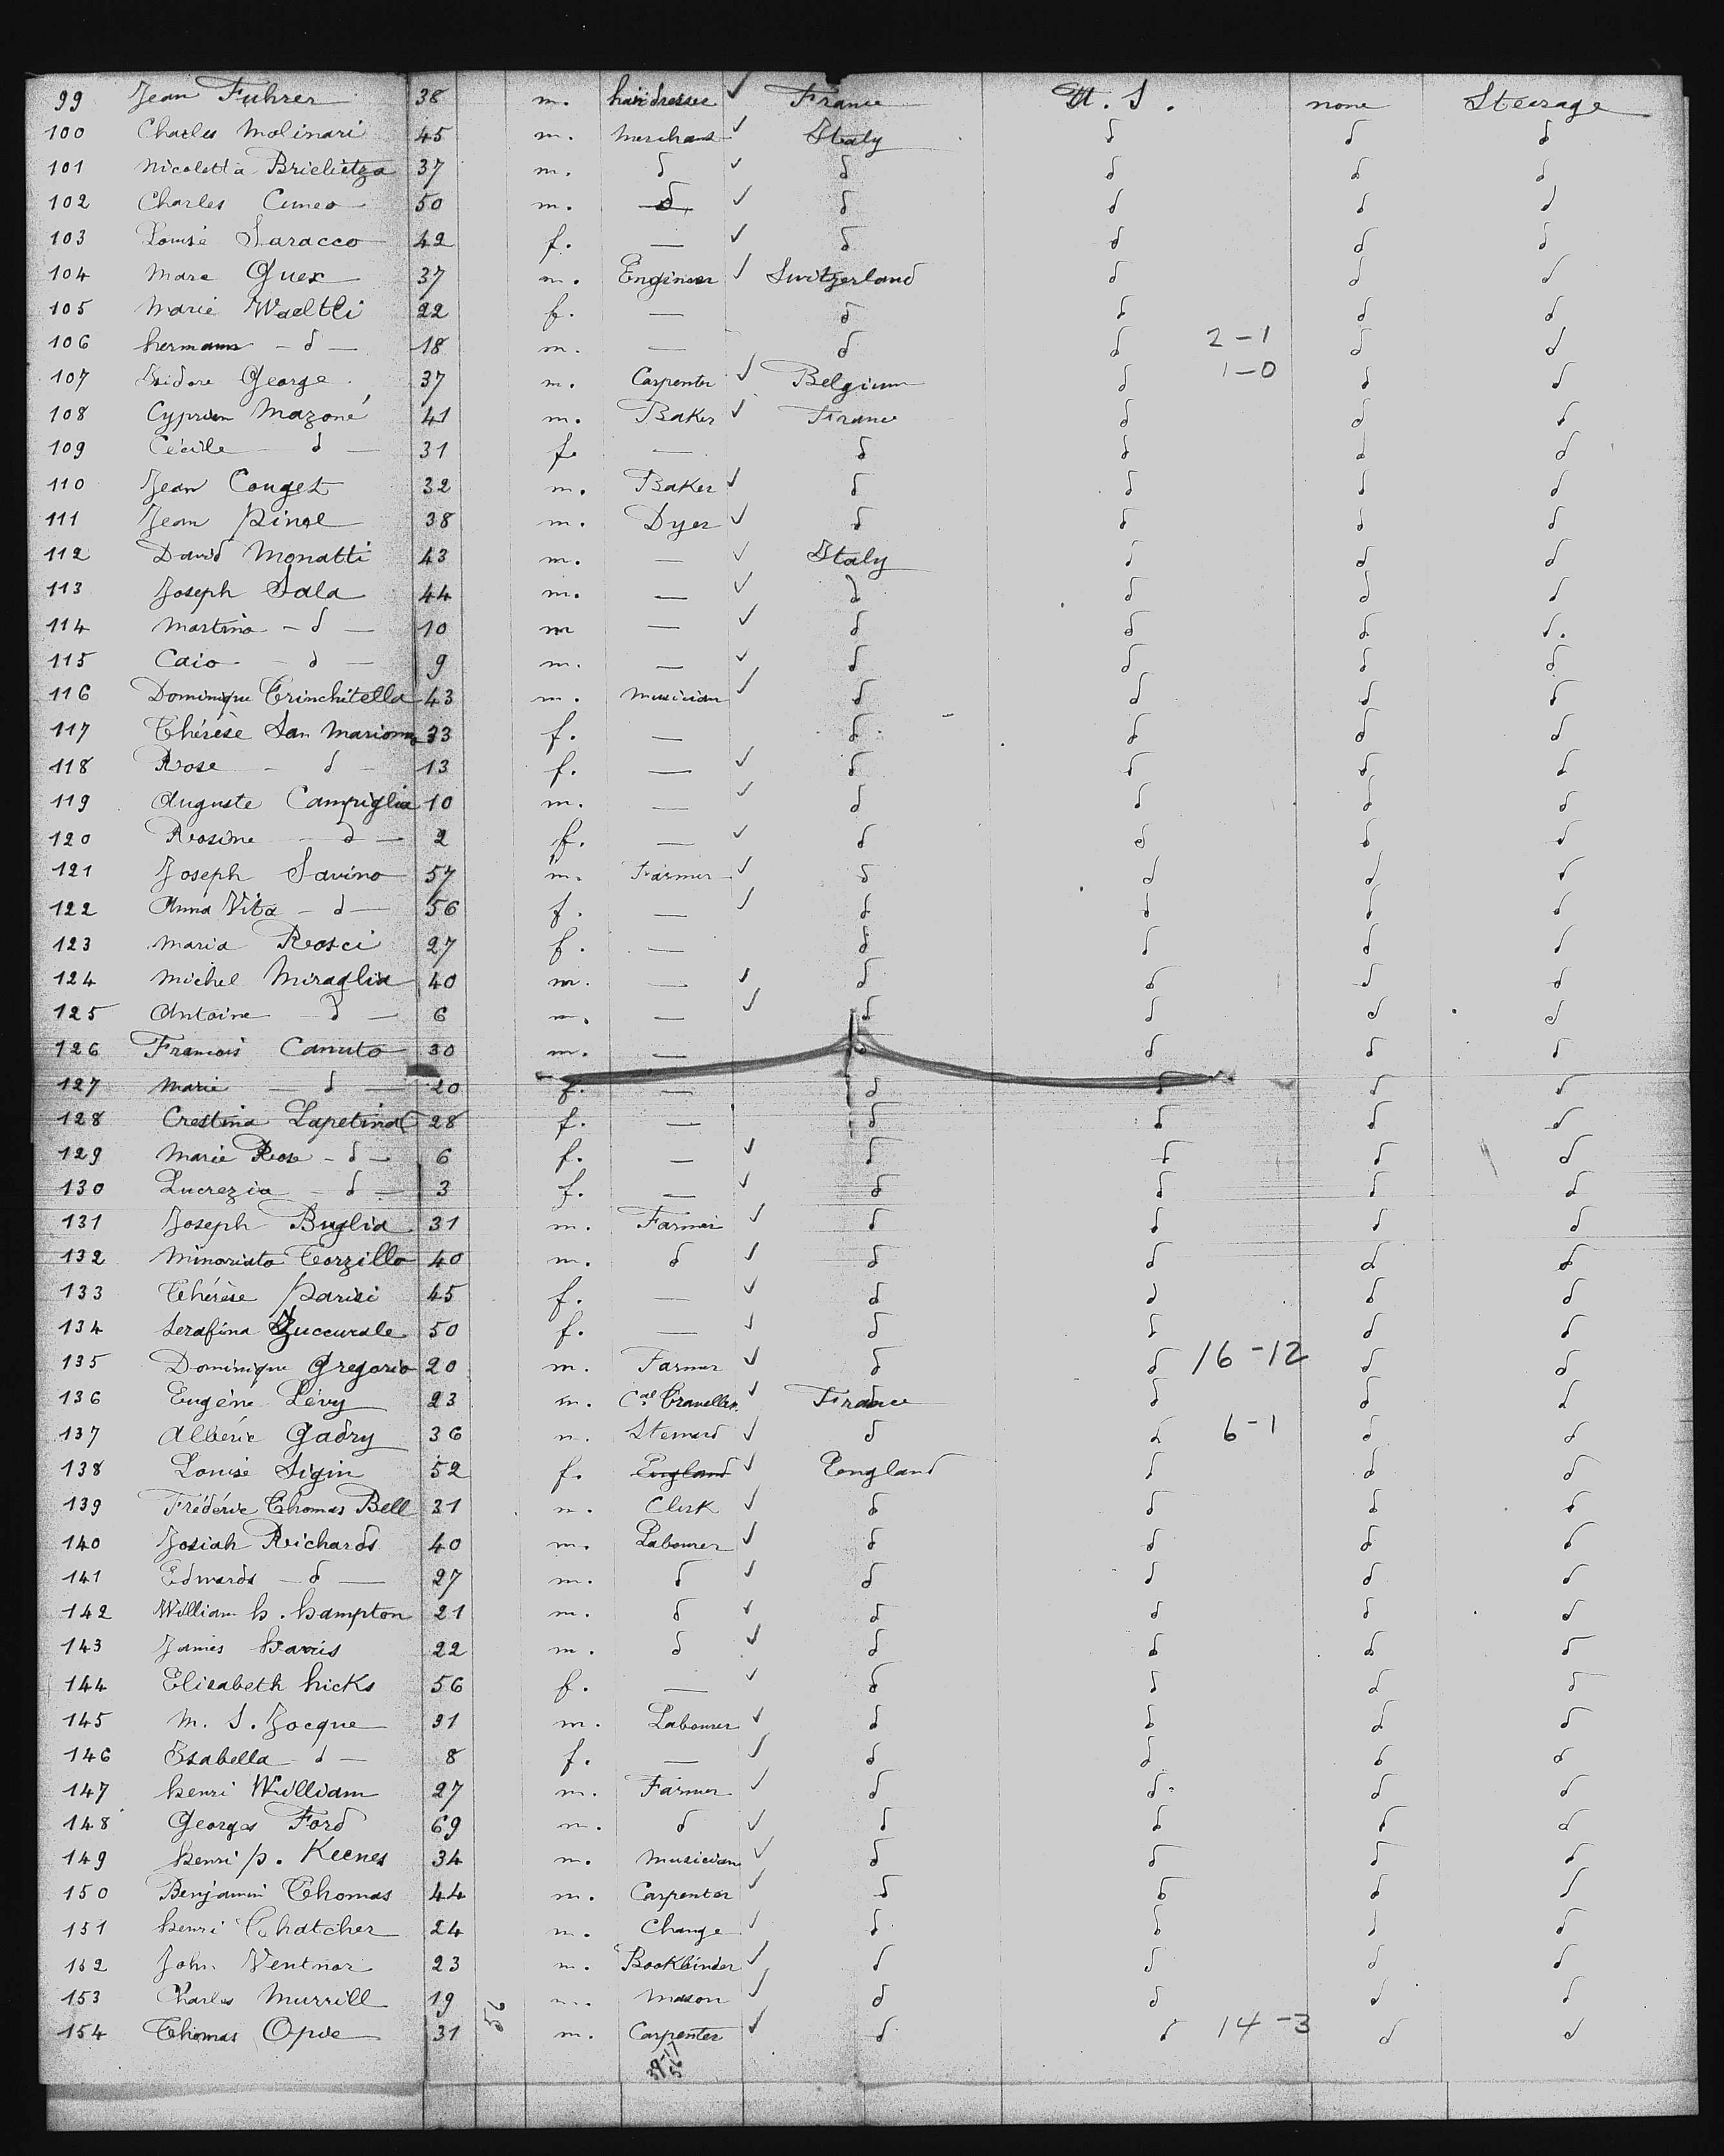 99 Jean Fuhrer 38 m. hairdresser ✓ France U. S. none Steerage
100 Charles Molinari 45 m. Merchant ✓ Italy d d d
101 Nicoletta Bricheitza 37 m. d ✓ d d d d
102 Charles Cuneo 50 m. d ✓ d d d d
103 Louise Saracco 42 f. — ✓ d d d d
104 Marc Guex 37 m. Engineer ✓ Switzerland d d d
105 Marie Waeltli 22 f. — d d d d
106 hermann - d — 18 m. — d d 2-1 d d
107 Isidore George 37 m. Carpenter ✓ Belgium d 1-0 d d
108 Cyprien Mazoné 41 m. Baker ✓ France d d d
109 Cécile — d — 31 f. — d d d d
110 Jean Couget 32 m. Baker ✓ d d d d
111 Jean Pinal 38 m. Dyer ✓ d d d d
112 David Monatti 43 m. — ✓ Italy d d d
113 Joseph Sala 44 m. — ✓ d d d d
114 Martino - d — 10 m — ✓ d d d d.
115 Caio - d — 9 m. — ✓ d d d d
116 Dominique Trinchitella 43 m. Musician ✓ d d d d
117 Thérèse San Marion 33 f. — d d d d
118 Rose - d - 13 f. — ✓ d d d d
119 Auguste Campiglia 10 m. — ✓ d d d d
120 Rosine — d — 2 f. — ✓ d d d d
121 Joseph Savino 57 m. Farmer ✓ d d d d
122 Anna Vita - d — 56 f. — ✓ d d d d
123 Maria Rosci 27 f. — d d d d
124 Michel Miraglia 40 m. — ✓ d d d d
125 Antoine — d — 6 m. — ✓ d d d d
126 Francois Canuto 30 m. — d d d d
127 Marie — d — 20 f. — d d d d
128 Crestina Lapetina 28 f. — d d d d
129 Marie Rose - d - 6 f. — ✓ d d d d
130 Lucrezia - d - 3 f. — ✓ d d d d
131 Joseph Buglia 31 m. Farmer ✓ d d d d
132 Minoriato Torzillo 40 m. d ✓ d d d d
133 Thérèse Parisi 45 f. — ✓ d d d d
134 Serafina Zuccurale 50 f. — ✓ d d d d
135 Dominique Gregorio 20 m. Farmer ✓ d d 16-12 d d
136 Eugène Lévy 23 m. Cal Traveller ✓ France d d d
137 Albéric Gadry 36 m. Steward ✓ d d 6-1 d d
138 Louise Sigin 52 f. England ✓ England d d d
139 Frédéric Thomas Bell 31 m. Clerk ✓ d d d d
140 Josiah Richards 40 m. Labourer ✓ d d d d
141 Edwards - d — 27 m. d ✓ d d d d
142 William h. hampton 21 m. d ✓ d d d d
143 James harris 22 m. d ✓ d d d d
144 Elisabeth hicks 56 f. — ✓ d d d d
145 M. S. Jocque 31 m. Labourer ✓ d d d d
146 Isabella - d — 8 f. — ✓ d d d d
147 henri William 27 m. Farmer ✓ d d. d d
148 Georges Ford 69 m. d ✓ d d d d
149 henri p. Keenes 34 m. Musician ✓ d d d d
150 Benjamin Thomas 44 m. Carpenter ✓ d d d d
151 henri Thatcher 24 m. Change ✓ d d d d
152 John Ventnor 23 m. Bookbinder ✓ d d d d
153 Charles Murrill 19 m. Mason ✓ d d d d
154 Thomas Opie 31 56 m. Carpenter ✓ d d 14-3 d d
39-17